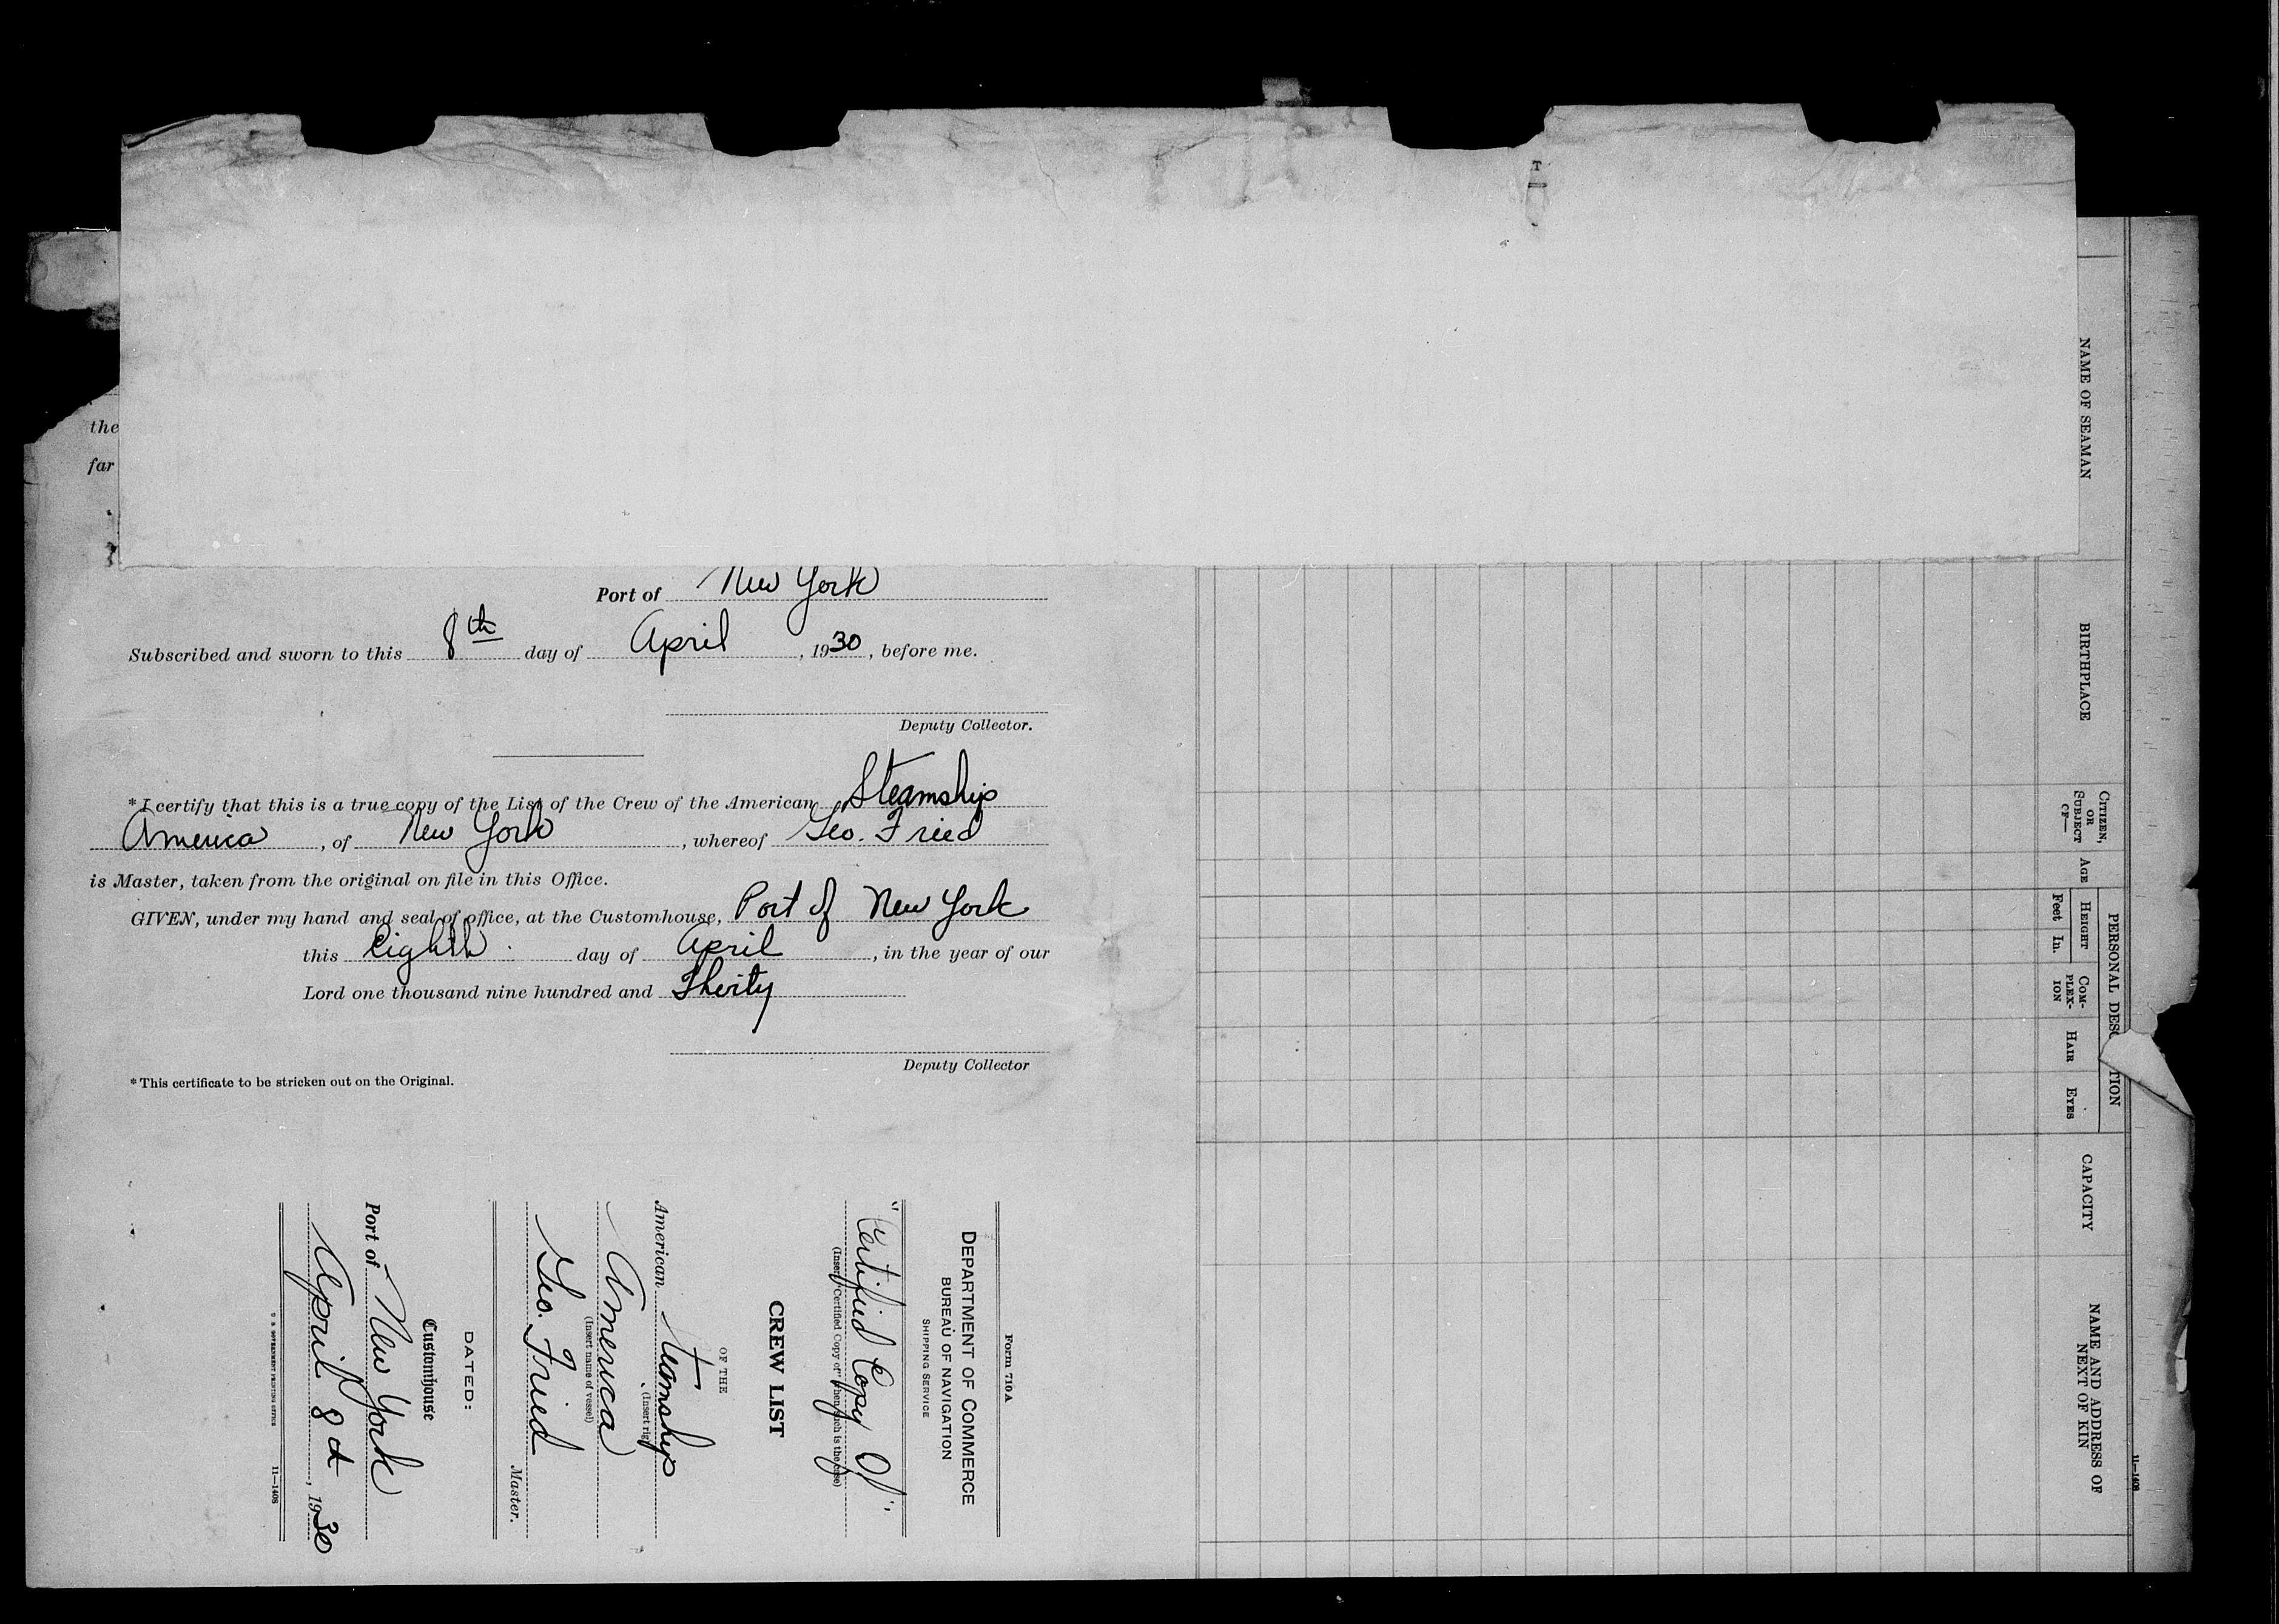 the
far
Port of New York
Subscribed and sworn to this 8th day of April, 1930, before me.
Deputy Collector.
* I certify that this is a true copy of the List of the Crew of the American Steamship
America, of New York, whereof Geo. Fried
is Master, taken from the original on file in this Office.
GIVEN, under my hand and seal of office, at the Customhouse, Port of New York
this Eighth day of April, in the year of our
Lord one thousand nine hundred and Thirty
Deputy Collector
* This certificate to be stricken out on the Original.
Form 710 A
DEPARTMENT OF COMMERCE
BUREAU OF NAVIGATION
SHIPPING SERVICE
"Certified Copy Of"
(Insert "Certified Copy of" when such is the case)
CREW LIST
OF THE
American Steamship
(Insert rig)
America
(Insert name of vessel)
Geo. Fried
Master.
DATED:
Customhouse
Port of New York
April 8th, 1930
U. S. GOVERNMENT PRINTING OFFICE 11—1408
NAME OF SEAMAN
BIRTHPLACE
CITIZEN,
OR
SUBJECT
OF—
AGE
PERSONAL DESC TION
HEIGHT
Feet In.
COM-
PLEX-
ION
HAIR
EYES
CAPACITY
NAME AND ADDRESS OF
NEXT OF KIN
11—1408